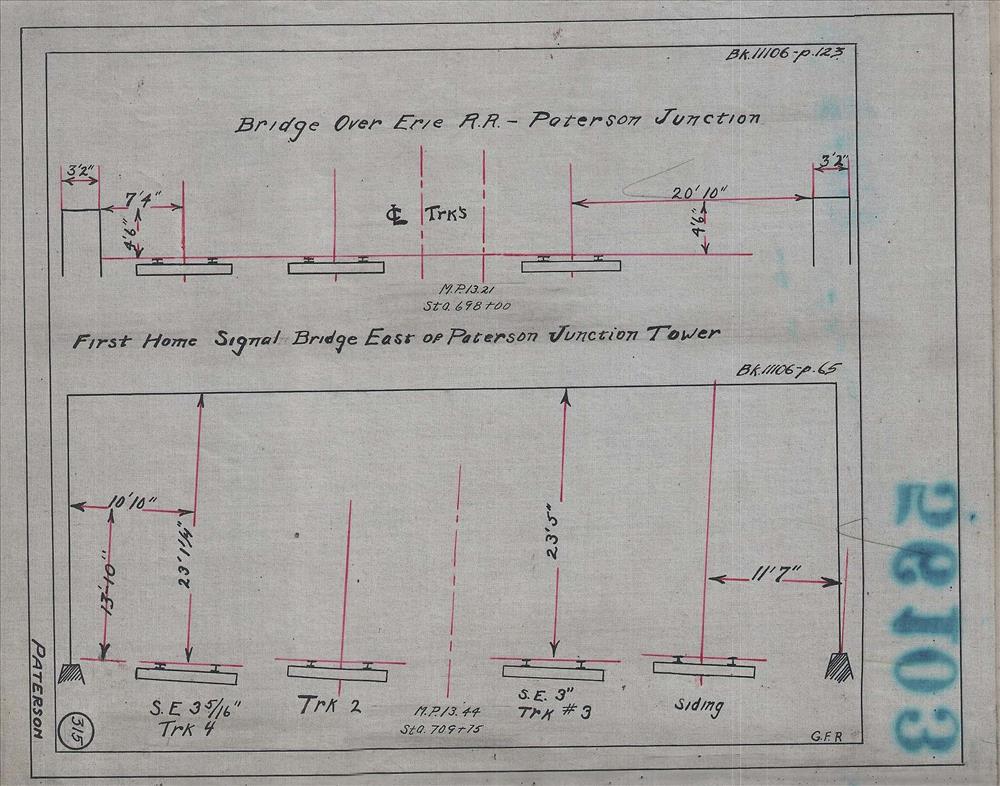 Bk.11106-p.123
Bridge Over Erie R.R. - Paterson Junction
3'2"
3'2"
7'4"
20'10"
4'6"
℄ Trk's
4'6"
M.P.13.21
Sta.698+00
First Home Signal Bridge East of Paterson Junction Tower
Bk.11106-p.65
10'10"
13'-10"
23'1¼"
23'5"
11'7"
S.E. 3 5/16"
Trk 4
Trk 2
M.P.13.44
Sta.709+75
S.E. 3"
Trk #3
Siding
G.F.R
PATERSON
315
56103